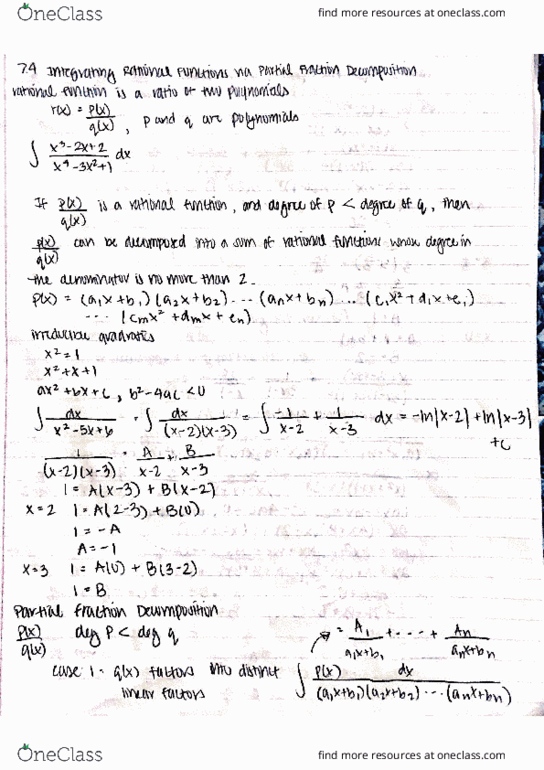 OneClass find more resources at oneclass.com
7.4 Integrating Rational Functions via Partial Fraction Decomposition
rational function is a ratio of two polynomials
r(x) = p(x)/q(x), p and q are polynomials
∫ (x³-2x+2)/(x⁴-3x²+1) dx
If p(x)/q(x) is a rational function, and degree of p < degree of q, then
p(x)/q(x) can be decomposed into a sum of rational functions whose degree in
the denominator is no more than 2.
p(x) = (a₁x+b₁)(a₂x+b₂)...(aₙx+bₙ)...(c₁x²+d₁x+e₁)
...(cₘx²+dₘx+eₙ)
irreducible quadratics
x²=1
x²+x+1
ax²+bx+c, b²-4ac<0
∫ dx/(x²-5x+6) = ∫ dx/((x-2)(x-3)) = ∫ -1/(x-2) + 1/(x-3) dx = -ln|x-2|+ln|x-3|
+c
1/((x-2)(x-3)) = A/(x-2) + B/(x-3)
1 = A(x-3) + B(x-2)
x=2 1 = A(2-3) + B(0)
1 = -A
A = -1
x=3 1 = A(0) + B(3-2)
1 = B
Partial Fraction Decomposition
p(x)/q(x) deg p < deg q = A₁/(a₁x+b₁) + ... + Aₙ/(aₙx+bₙ)
case 1 - q(x) factors into distinct ∫ p(x) dx/((a₁x+b₁)(a₂x+b₂)...(aₙx+bₙ))
linear factors
OneClass find more resources at oneclass.com